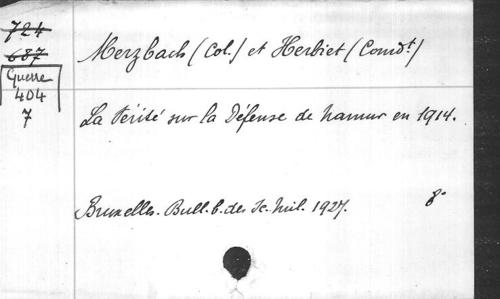 724
687
Guerre
404
7
Merzbach (Col.) et Herbiet (Comdt.)
La Vérité sur la Défense de Namur en 1914.
Bruxelles. Bull. b. des Sc. Mil. 1927. 8°